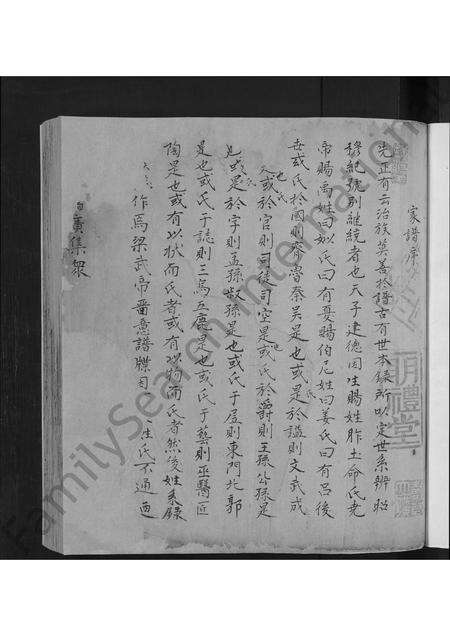 家譜序
先正有云治族莫善於譜古有世本錄所以定世系辨昭
穆紀號別繼統者也天子建德因生賜姓胙土命氏堯
帝賜禹姓曰姒氏曰有夏賜伯夷姓曰姜氏曰有呂後
世或氏於國則有魯秦吴是也或是於謚則文武成
是也或於官則司徒司空是或氏於爵則王孫公孫是
也或是於字則孟孫叔孫是也或氏于居則東門北郭
是也或氏于誌則三烏五鹿是也或氏于藝則巫醫匠
陶是也或有以狀而氏者或有以物而氏者然後姓系錄
作焉梁武帝留意譜牒
姓氏不通西
廣集眾
明禮堂
FamilySearch International